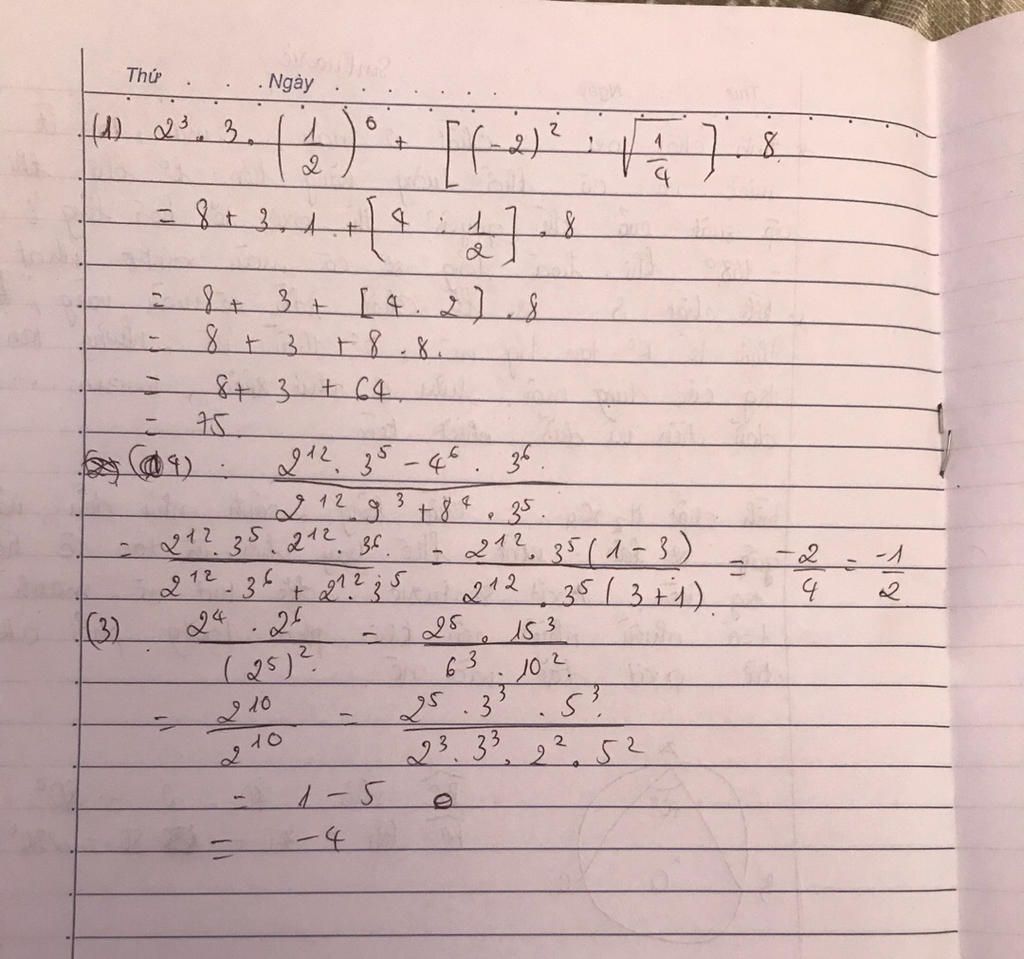 Thứ . . . Ngày . . . . . . .
(1) 2³ . 3 . (1/2)⁰ + [(-2)² : √(1/4)] . 8.
= 8 + 3 . 1 . + [4 : 1/2] . 8
= 8 + 3 + [4 . 2] . 8
= 8 + 3 + 8 . 8.
= 8 + 3 + 64.
= 75.
(4) . (2¹² . 3⁵ - 4⁶ . 3⁶.)/(2¹² . 9³ + 8⁴ . 3⁵.)
= (2¹² . 3⁵ . 2¹² . 3⁶)/(2¹² - 3⁶ + 2¹² . 3⁵) = (2¹² . 3⁵ (1 - 3))/(2¹² . 3⁵ (3 + 1).) = -2/4 = -1/2
(3) (2⁴ . 2⁶)/((2⁵)².) = (2⁵ . 15³)/(6³ . 10².)
= 2¹⁰/2¹⁰ = (2⁵ . 3³ . 5³.)/(2³ . 3³ . 2² . 5²)
= 1 - 5
= -4